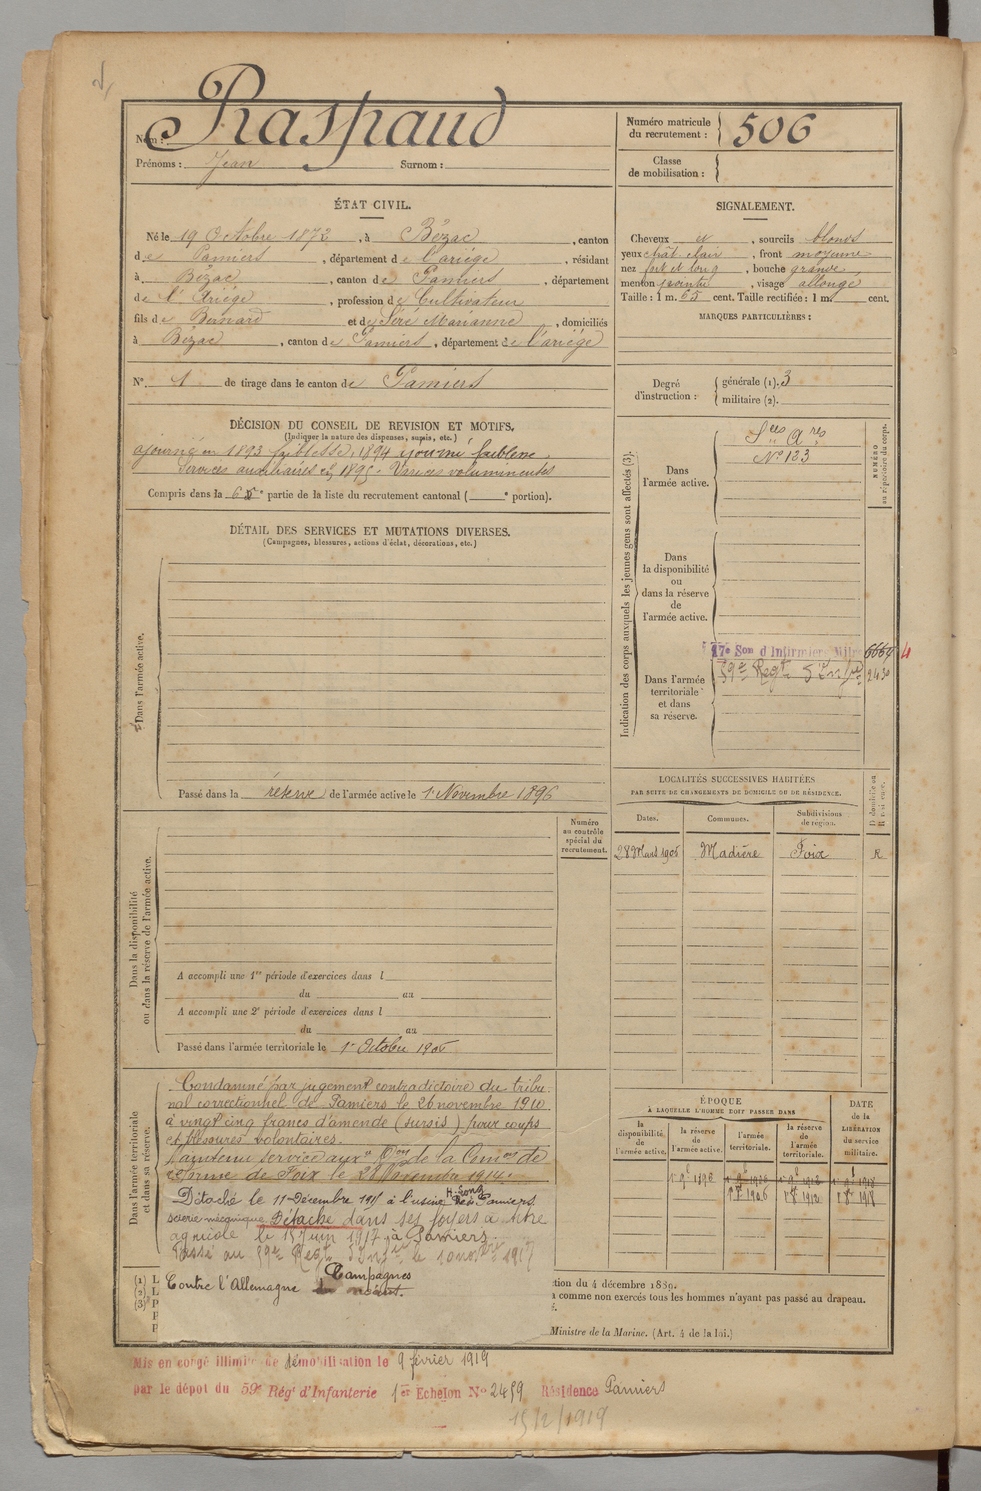 Nom : Raspaud
Prénoms : Jean Surnom :
Numéro matricule
du recrutement : 506
Classe
de mobilisation :
ÉTAT CIVIL.
Né le 19 Octobre 1872, à Bézac, canton
de Pamiers, département de l'ariége, résidant
à Bézac, canton de Pamiers, département
de l'Ariège, profession de Cultivateur
fils de Bernard et de Séré Marianne, domiciliés
à Bézac, canton de Pamiers, département de l'ariége
N° 1 de tirage dans le canton de Pamiers
SIGNALEMENT.
Cheveux et, sourcils blonds
yeux chât clair, front moyenne
nez fort et long, bouche grande,
menton pointu, visage allongé
Taille : 1 m. 65 cent. Taille rectifiée : 1 m cent.
MARQUES PARTICULIÈRES :
Degré
d'instruction :
générale (1). 3
militaire (2).
DÉCISION DU CONSEIL DE REVISION ET MOTIFS.
(Indiquer la nature des dispenses, sursis, etc.)
ajourné en 1893 faiblesse, 1894 ajourné faiblesse.
Services auxiliaires en 1895. Varices volumineuses
Compris dans la 6 e partie de la liste du recrutement cantonal ( e portion).
DÉTAIL DES SERVICES ET MUTATIONS DIVERSES.
(Campagnes, blessures, actions d'éclat, décorations, etc.)
Dans l'armée active.
Passé dans la réserve de l'armée active le 1er Novembre 1896
Indication des corps auxquels les jeunes gens sont affectés (3).
NUMÉRO
au répertoire du corps.
Dans
l'armée active.
Sces Ares
N° 123
Dans
la disponibilité
ou
dans la réserve
de
l'armée active.
Dans l'armée
territoriale
et dans
sa réserve.
17e Son d'Infirmiers Milres 6654 4
59e Regt d'Infie 2430
LOCALITÉS SUCCESSIVES HABITÉES
PAR SUITE DE CHANGEMENTS DE DOMICILE OU DE RÉSIDENCE.
Dates. Communes. Subdivisions
de région.
28 Mars 1906 Madière Foix R
Dans la disponibilité
ou dans la réserve de l'armée active.
Numéro
au contrôle
spécial du
recrutement.
A accompli une 1re période d'exercices dans l
du au
A accompli une 2e période d'exercices dans l
du au
Passé dans l'armée territoriale le 1er Octobre 1906
Dans l'armée territoriale
et dans sa réserve.
Condamné par jugement contradictoire du tribu-
nal correctionnel de Pamiers le 26 novembre 1910
à vingt cinq francs d'amende (sursis) pour coups
et blessures volontaires.
Maintenu service auxre Don de la Comon de
réforme de Foix le 28 Novembre 1914.
Détaché le 11 Décembre 1915 à l'usine H. Sons Pamiers
scierie mécanique Détaché dans ses foyers à titre
agricole le 15 Juin 1917 à Pamiers
Passé au 59e Regt d'Infie le 10 novbre 1917
Campagnes
Contre l'Allemagne
ÉPOQUE
À LAQUELLE L'HOMME DOIT PASSER DANS
la
disponibilité
de
l'armée active.
la réserve
de
l'armée active.
l'armée
territoriale.
la réserve
de
l'armée
territoriale.
DATE
de la
LIBÉRATION
du service
militaire.
1er 9bre 1896
1er 8bre 1906 1er 8bre 1912 1er 8bre 1918
tion du 4 décembre 1889.
comme non exercés tous les hommes n'ayant pas passé au drapeau.
Ministre de la Marine. (Art. 4 de la loi.)
(1) L
(2) L
(3) P
Mis en congé illimité de démobilisation le 9 février 1919
par le dépot du 59e Régt d'Infanterie 1er Echelon N° 2459 Résidence Pamiers
15/2/1919